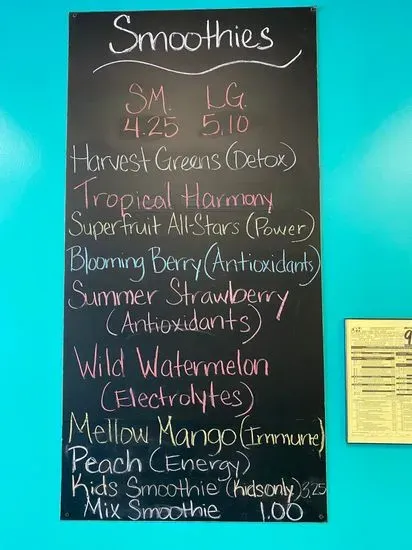 Smoothies
SM. LG.
4.25 5.10
Harvest Greens (Detox)
Tropical Harmony
Superfruit All-Stars (Power)
Blooming Berry (Antioxidants)
Summer Strawberry
(Antioxidants)
Wild Watermelon
(Electrolytes)
Mellow Mango (Immune)
Peach (Energy)
Kids Smoothie (kids only) 3.25
Mix Smoothie 1.00